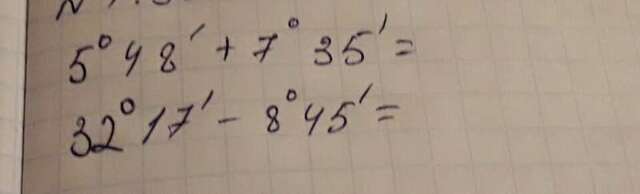 5° 48' + 7° 35' =
32° 17' - 8° 45' =